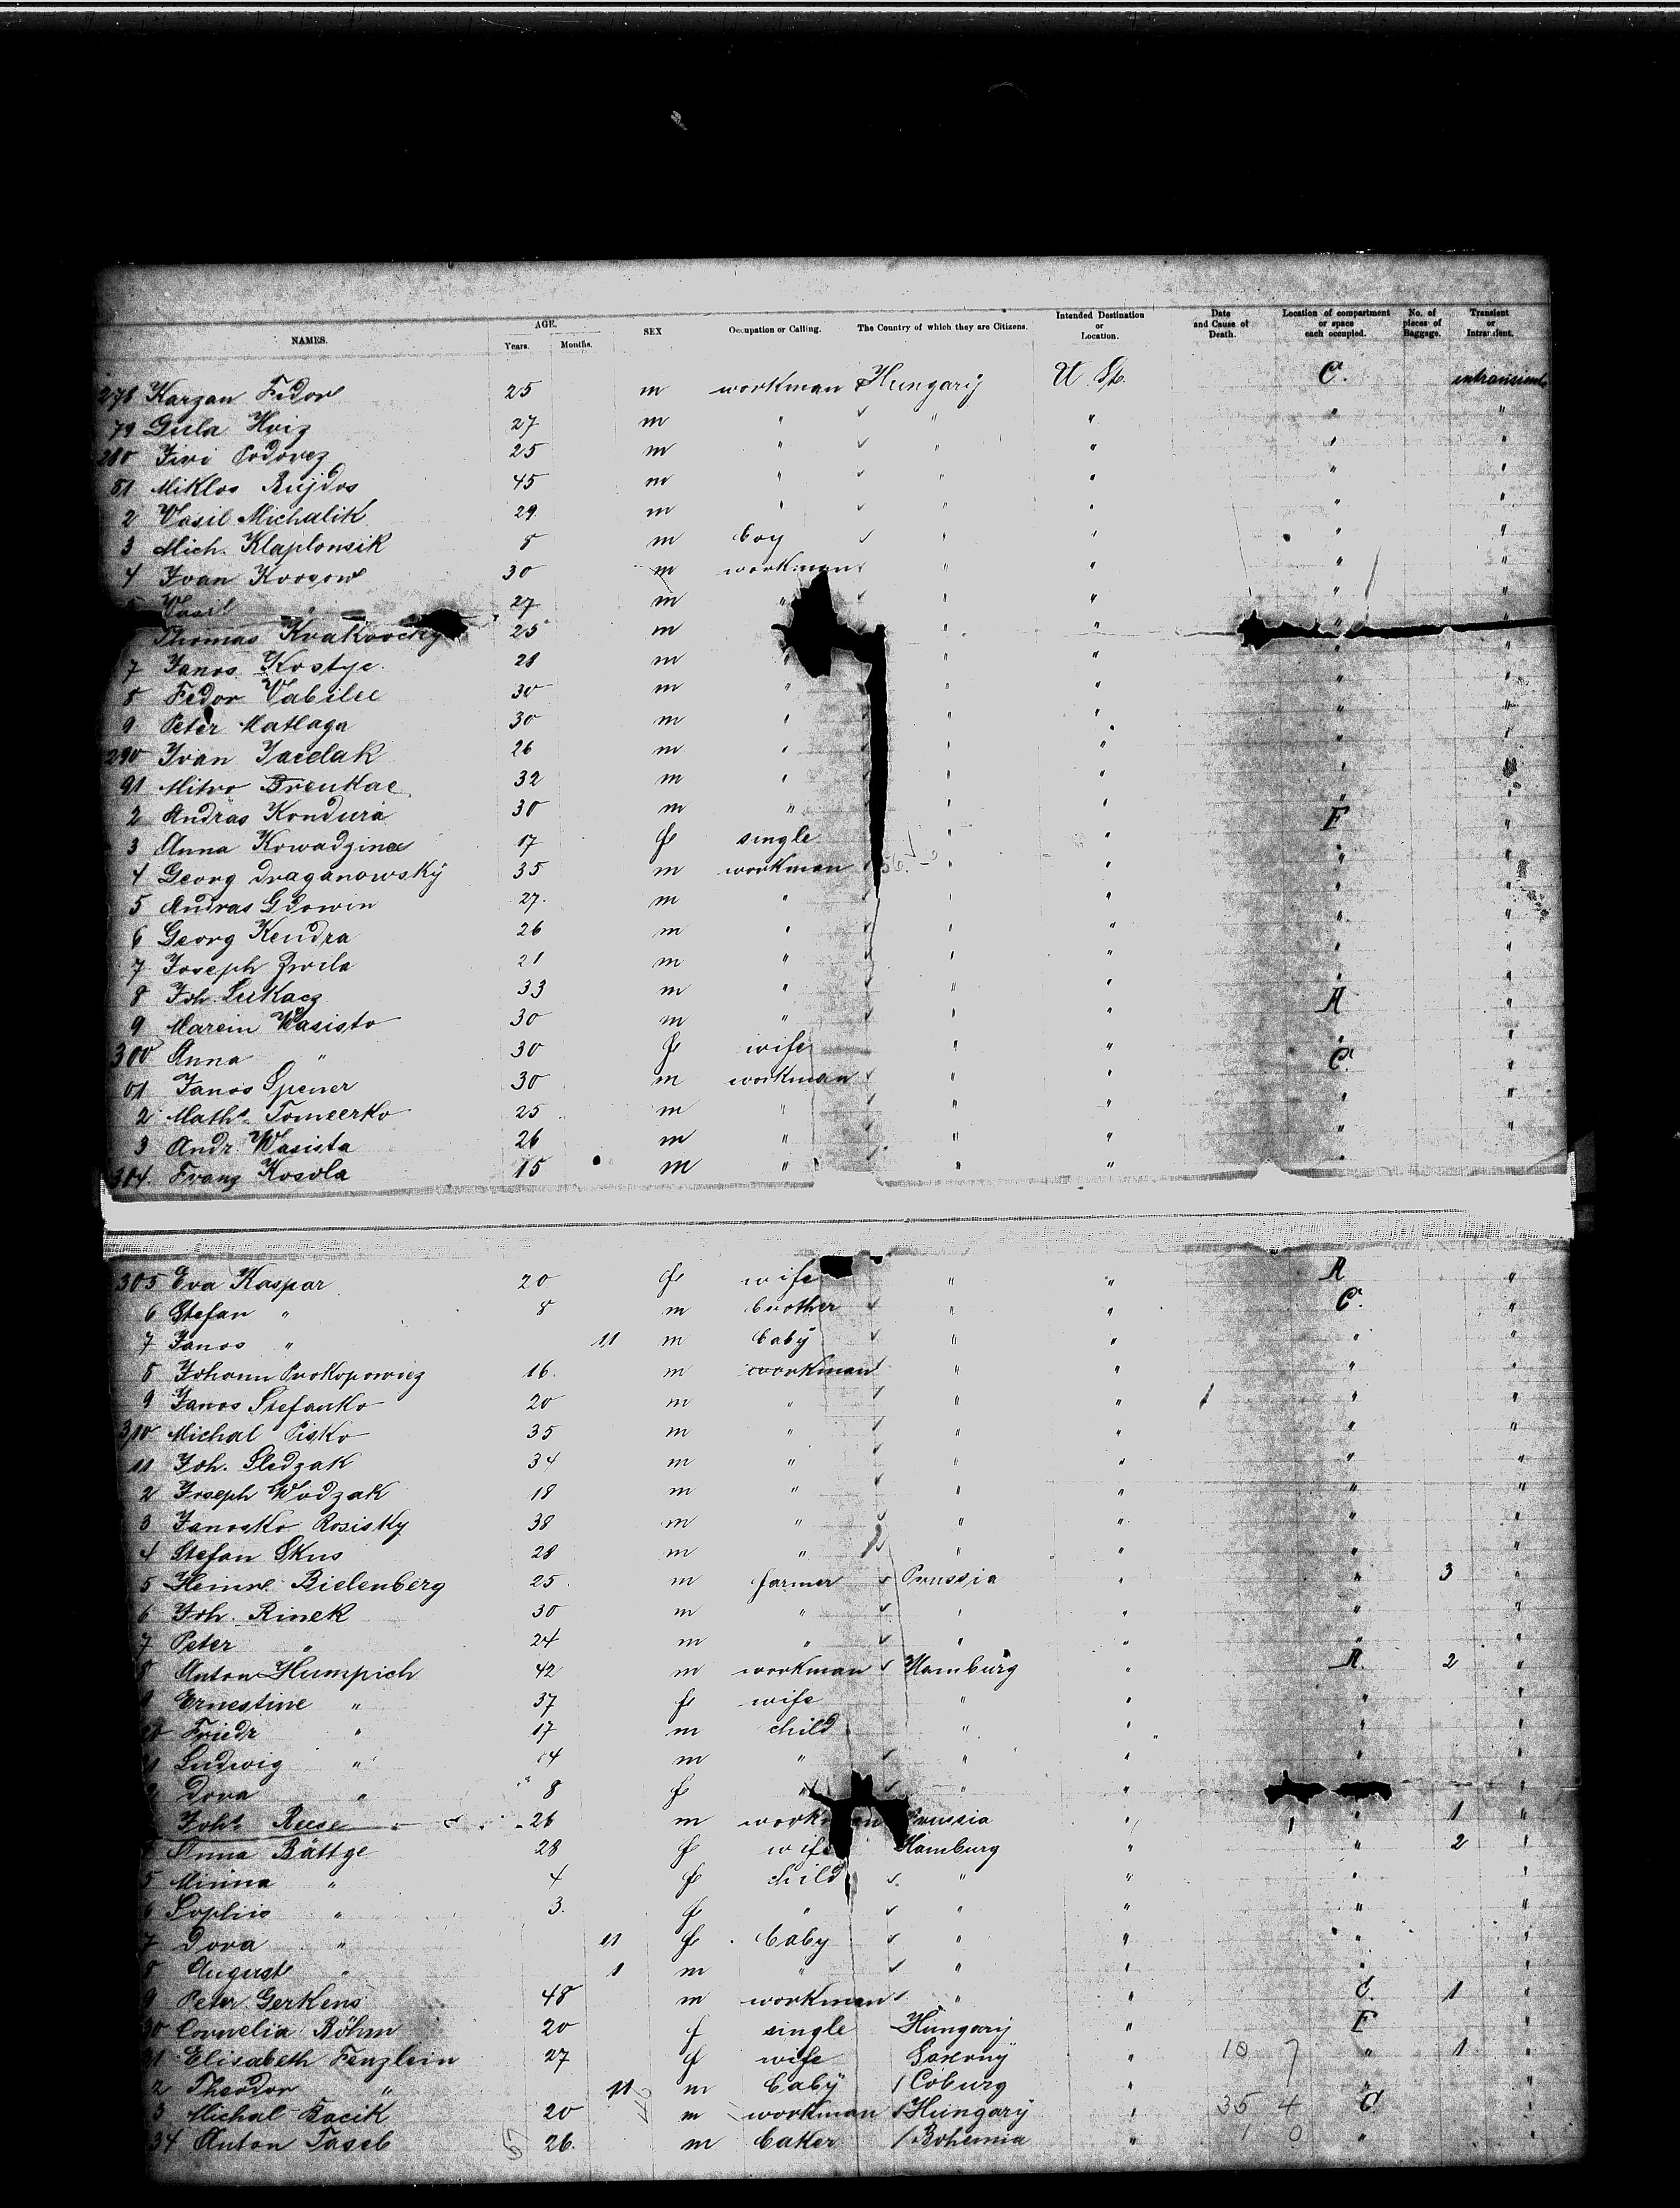 NAMES. AGE. Years. Months. SEX Occupation or Calling. The Country of which they are Citizens. Intended Destination or Location. Date and Cause of Death. Location of compartment or space each occupied. No. of pieces of Baggage. Transient or Intransient.
278 Karzan Fedor 25 m workman Hungary U. St. C. intransient
79 Gula Hviz 27 m " " " " "
280 Jivi Podovez 25 m " " " " "
81 Miklos Bujdos 45 m " " " " "
2 Vasil Michalik 29 m " " " " "
3 Mich. Klaplonsik 8 m boy " " " "
4 Ivan 30 m workman " " " "
Vasil " 27 m " " " "
Thomas Kvakovcky 25 m " " " "
7 Janos Kostye 21 m " " " " "
8 Fedor 30 m " " " " "
9 Peter Matlaga 30 m " " " " "
290 Ivan Jacelak 26 m " " " " "
91 Mitro 32 m " " " " "
2 Andras Kondura 30 m " " " F "
3 Anna Kowadzina 17 f single " " " "
4 Georg Draganowsky 35 m workman " " " "
5 Andras Gdowin 27. m " " " " "
6 Georg Kendra 26 m " " " " "
7 Joseph Zwila 21 m " " " " "
8 Joh. Lukacz 33 m " " " A "
9 Marcin Wasisto 30 m " " " " "
300 Anna " 30 f wife " " C. "
01 Janos Spener 30 m workman " " " "
2 Math. Tomcerko 25 m " " " " "
3 Andr. Wasista 26 m " " " " "
304. Franz Kosola 15 m " " " "
305 Eva Kaspar 20 f wife " " A "
6 Stefan " 8 m brother " " C. "
7 Janos " 11 m baby " " " "
8 Johann Prokopowicz 16. m workman " " " "
9 Janos Stefanko 20 m " " " " "
310 Michal Pisko 35 m " " " " "
11 Joh. Sledzak 34 m " " " " "
2 Joseph Wodzak 18 m " " " " "
3 Janosko Rosisky 38 m " " " " "
4 Stefan Skus 28 m " " " " "
5 Heinr. Bielenberg 25. m farmer Prussia " " 3 "
6 Joh. Rinek 30 m " " " " "
7 Peter " 24 m " " " " "
8 Anton Humpich 42 m workman Hamburg " A. 2 "
9 Ernestine " 37 f wife " " " "
Friedr " 17 m child " " " "
Ludwig " 14 m " " " " "
Dora " 8 f " " " "
Johs Reese 26 m workman Prussia " " 1 "
Anna Bättge 28 f wife Hamburg " " 2 "
5 Minna " 4 f child " " " "
6 Sophie " 3. f " " " " "
7 Dora " 11 f baby " " " "
8 August " 1 m " " " " "
9 Peter Gerkens 48 m workman " " C. 1 "
30 Cornelia Böhm 20 f single Hungary " F "
31 Elisabeth Fenzlein 27 f wife Saxony " 10 7 " 1 "
2 Theodor " 11 m baby Coburg " " "
3 Michal Bacik 20 m workman Hungary " 35 4 C. "
34 Anton 26. m baker Bohemia " 1 0 " "